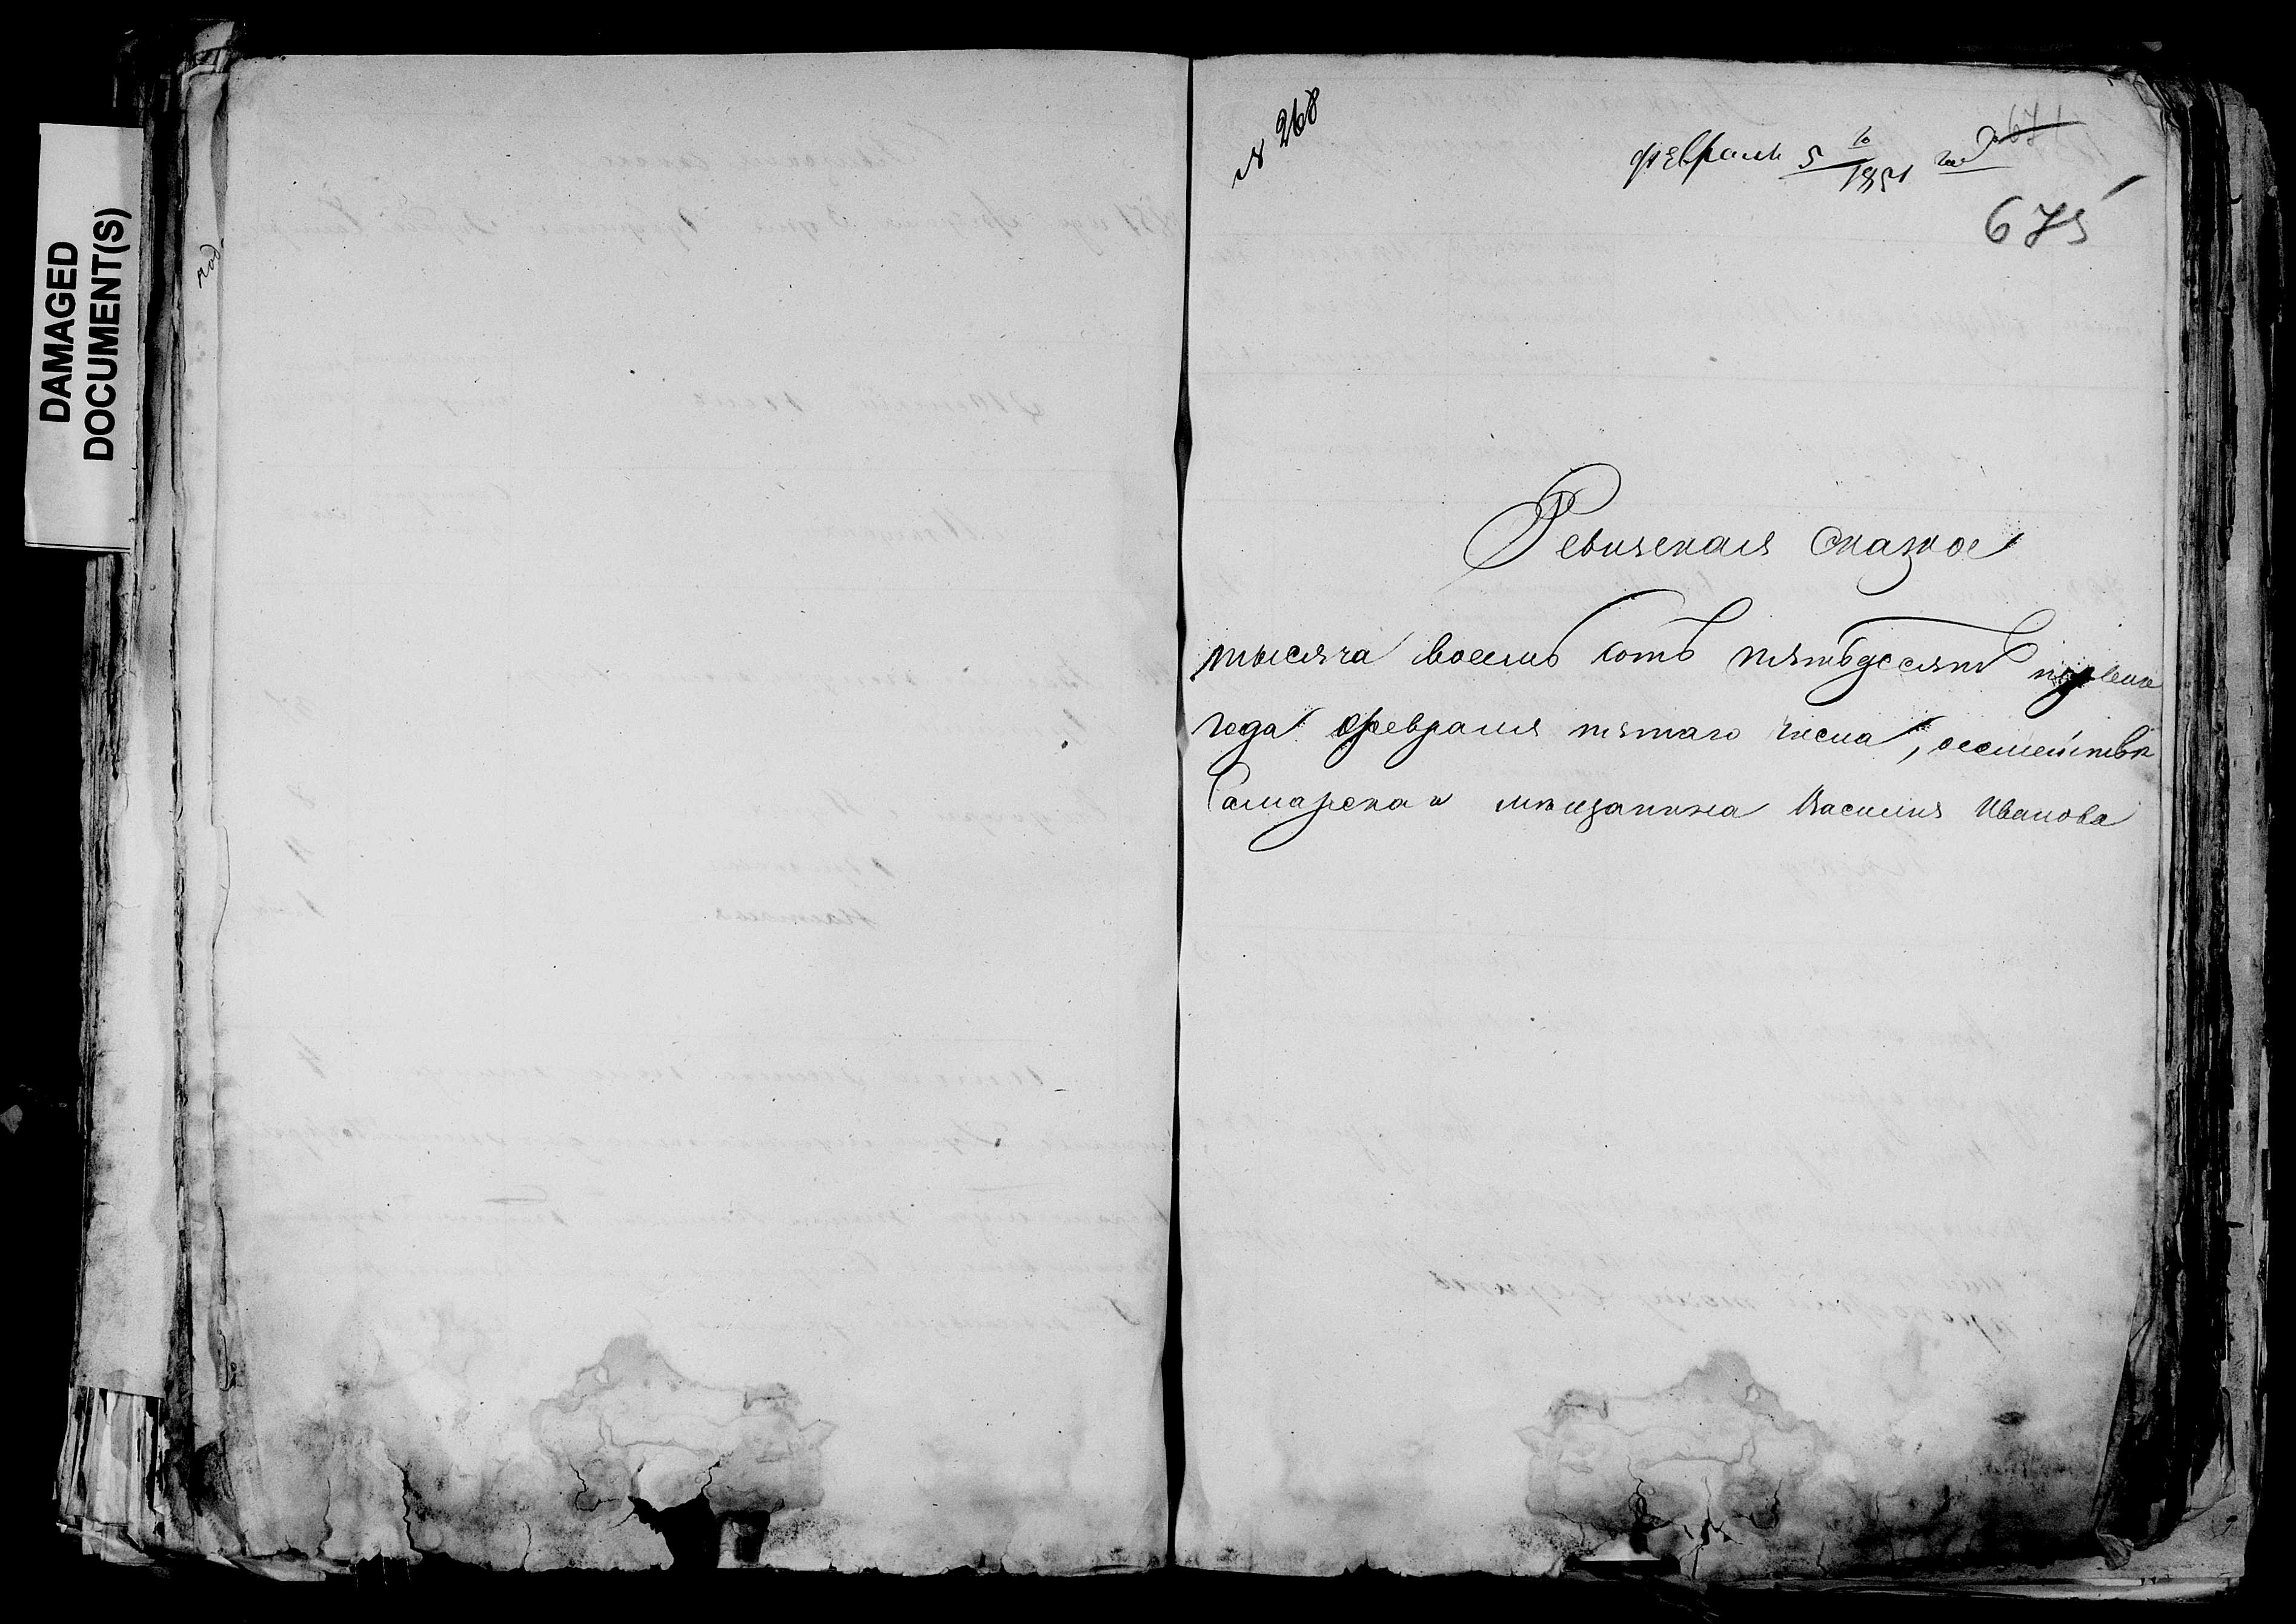 DAMAGED
DOCUMENT(S)
№ 268
февраля 5 го 1851 года
675
Ревизская сказка
тысяча восемь сотъ пятьдесятъ перваго
года февраля пятаго числа, осемействѣ
Самарскаго мѣщанина Василия Иванова